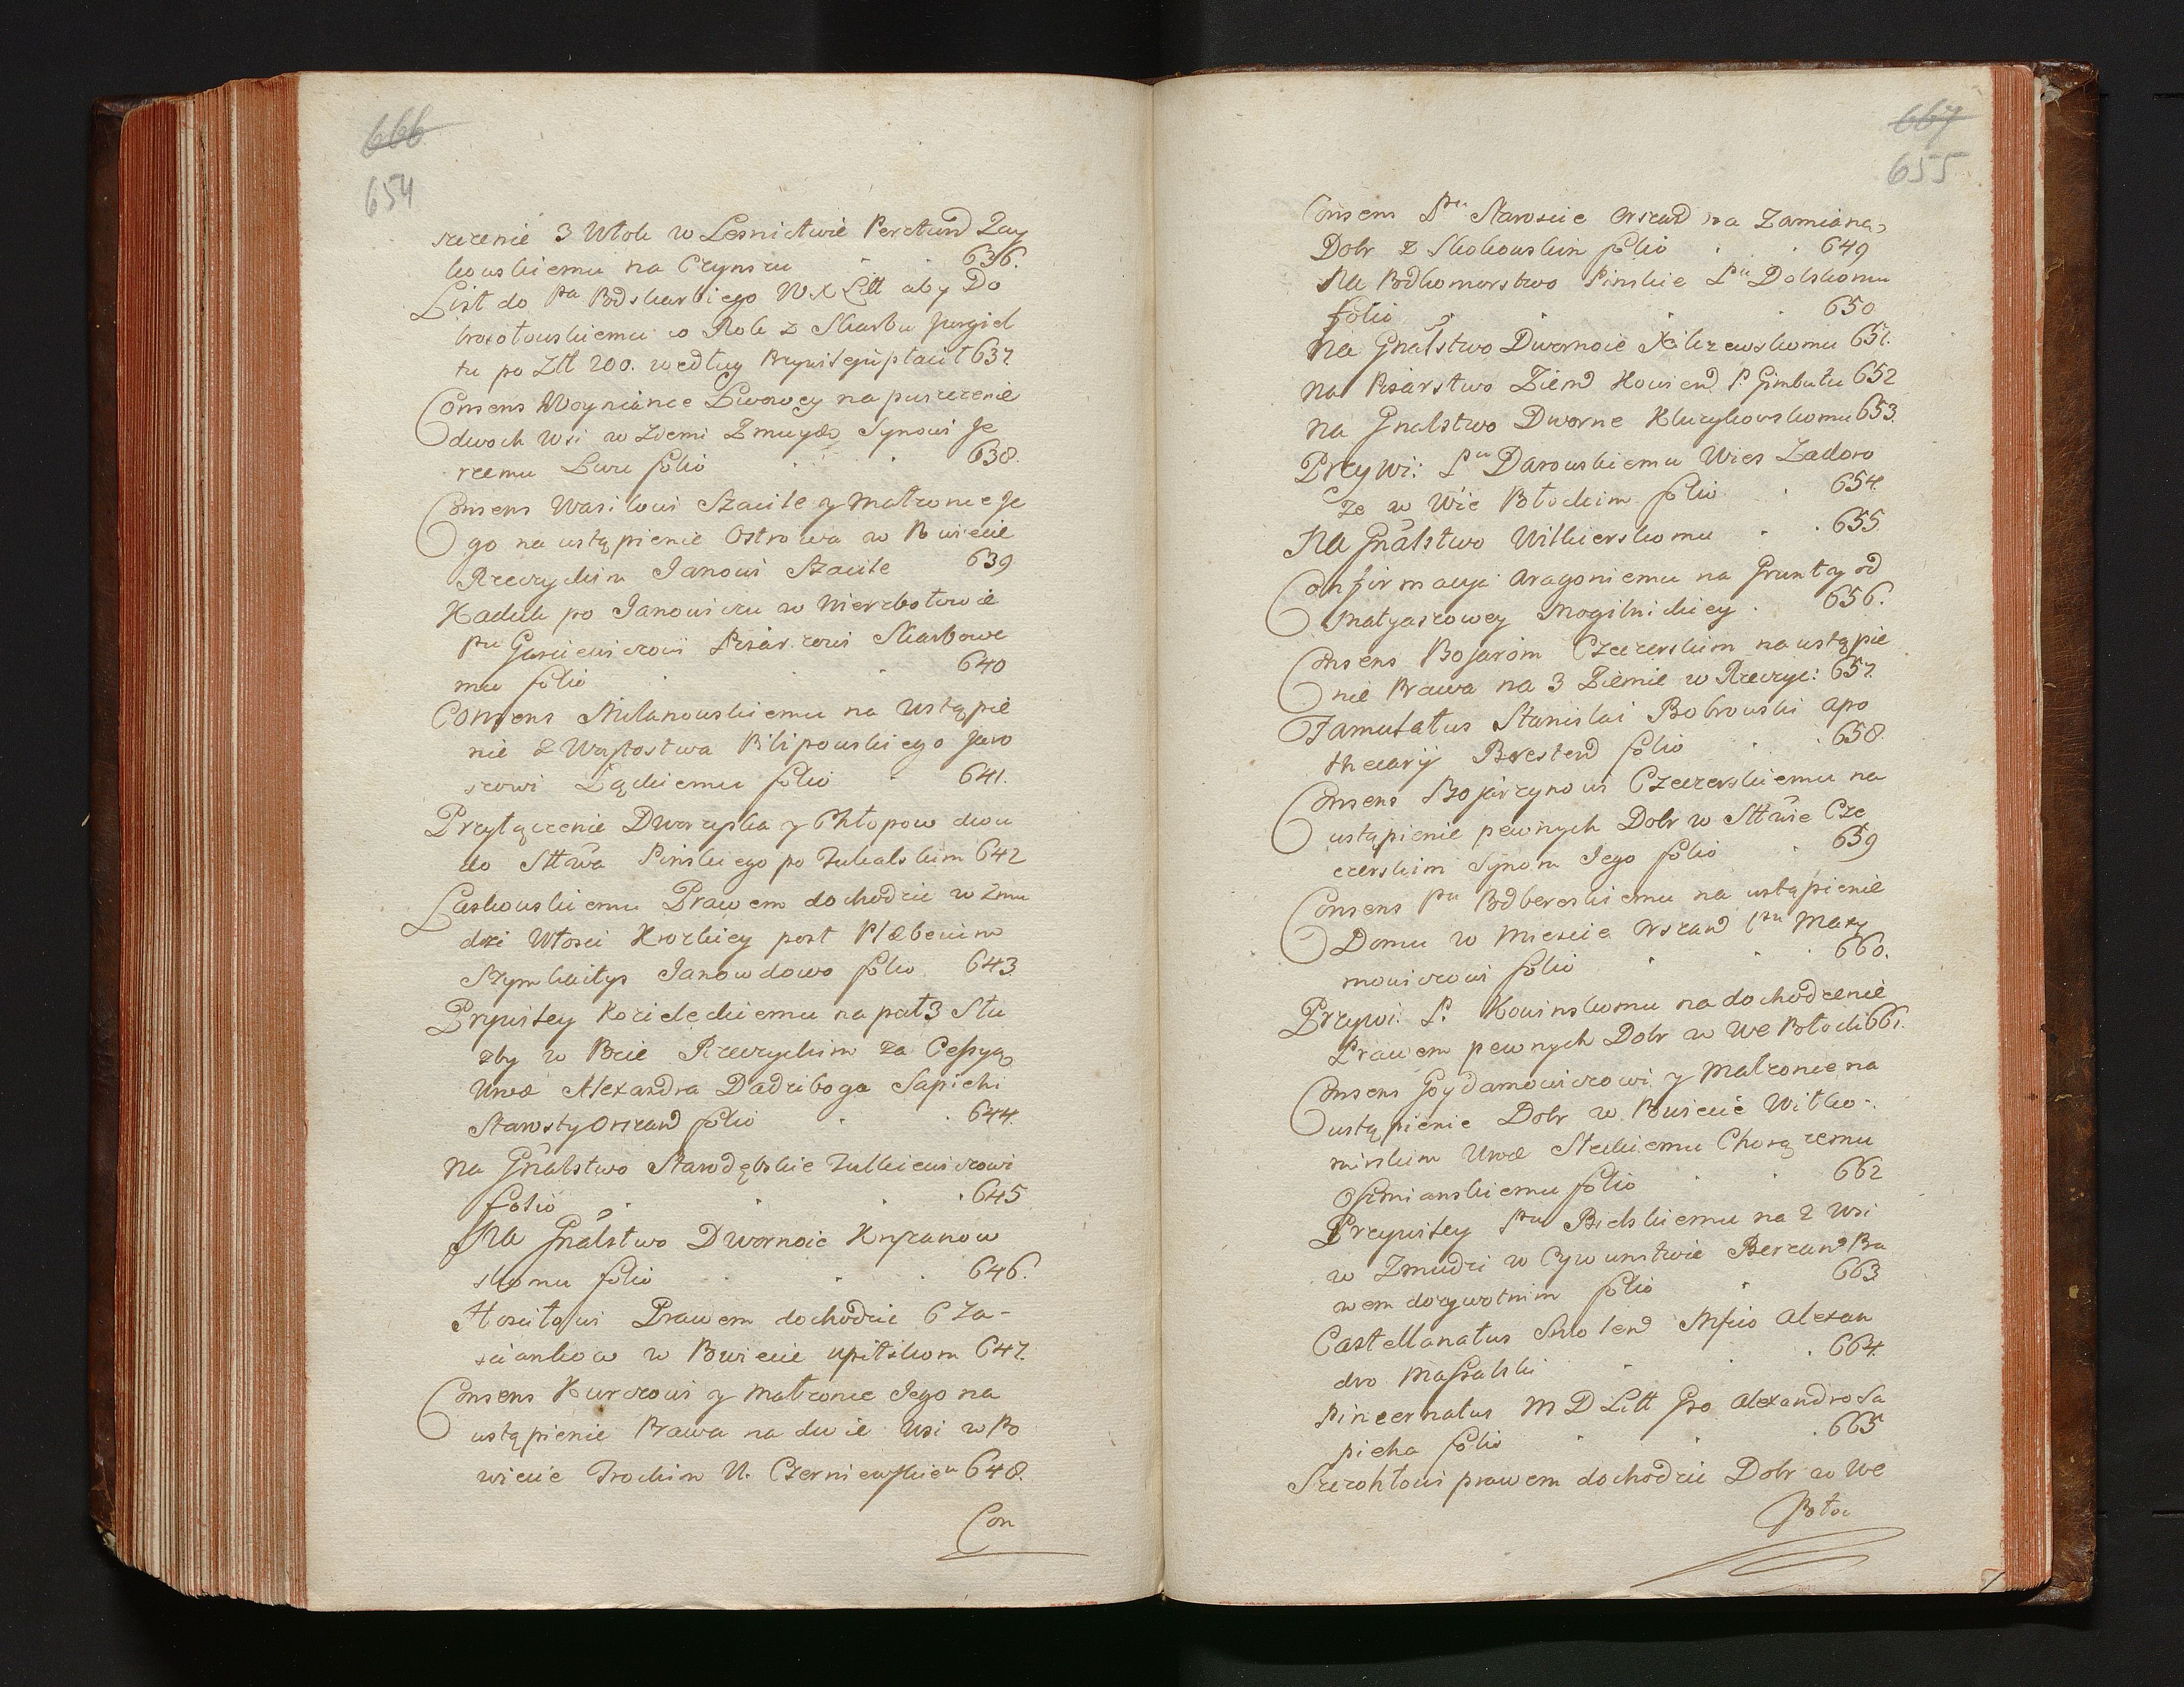 666
654
szczenie 3 Włok w Lesnictwie Perstuń Zay
kowskiemu na Czynszu 636.
List do Pa Podskarbiego W X Litt aby Do
brosołowskiemu co Rok z Skarbu Jurgiel
tu po Ztt 200. według Przywileju płacił 637.
Consens Woyniance Lwowey na puszczenie
dwoch Wsi w Ziemi Zmuydz Synowi Je
rzemu Lwu folio 638.
Consens Wasilowi Szacile y Małzonce Je
go na ustąpienie Ostrowa w Powiecie
Rzeczyckim Janowi Szacile 639
Kaduk po Janowiczu w Wierzbołowie
Pu Gąsiewiczowi Pisarzowi Skarbowe
mu folio 640
Consens Milanowskiemu na Ustąpie
nie z Woytostwa Filipowskiego Jaro
szowi Łąckiemu folio 641.
Przyłączenie Dworzyska y Chłopow dwu
do Sttwa Pinskiego po Zukalskim 642
Laskowskiemu Prawem dochodzić w Zmu
dzi Włosci Krozkiey post Plæbeium
Szymkaitys Janowdowo folio 643
Przywiley Kocieleckiemu na pał 3 Słu
zby w Pcie Rzeczyckim za Cessyą
Urod Alexandra Dadziboga Sapiehi
Starosty Orszań folio 644.
Na Gnalstwo Starodębskie Zulkiewiczowi
folio 645
Na Gnalstwo Dwornoie Kryzanow
skomu folio 646.
Hositowi Prawem dochodzić 6 Za-
sciankow w Powiecie Upitskom 647.
Consens Kurczowi y Małzonce Jego na
ustąpienie Prawa na dwie Wsi w Po
wiecie Trockim U. Czerniewskieu 648.
Con
667
655
Consens Pru Staroscie Orszań na Zamianę
Dobr z Skokowskim folio 649
Na Podkomorstwo Pinskie Pu Dolskomu
folio 650
Na Gnalstwo Dwornoie Kilczewskomu 651.
Na Pisarstwo Ziem Kowień P. Gimbutu 652
Na Gnalstwo Dworne Kluczykowskomu 653.
Przywi: Pu Darowskiemu Wies Zadoro
ze w Wie Płockim folio 654.
Na Gnalstwo Wilkierskomu 655
Confirmacyi Aragoniemu na Grunty od
Matyaszowey Mogilnickiey 656.
Consens Bojarom Czeczerskim na ustąpie
nie Prawa na 3 Ziemie w Rzeczyc: 657.
Famulatus Stanislai Bobrowski Apo
thecarij Bresten folio 658.
Consens Bojarzynowi Czeczerskiemu na
ustąpienie pewnych Dobr w Sttwie Cze
czerskim Synom Jego folio 659
Consens Pu Podbereskiemu na ustąpienie
Domu w Miescie Warszaw Pru Mary
mowiczowi folio 660.
Przywi. P. Kowinskomu na dochodzenie
Prawem pewnych Dobr w We Połocki 661.
Consens Goydamowiczowi y Malzonce na
ustąpienie Dobr w Powiecie Wilko-
mirskim Urod Steckiemu Chorązemu
Oszmianskiemu folio 662
Przywiley Pru Bielskiemu na 2 Wsi
w Zmudzi w Cywunstwie Berzań Pra
wem dozywotnim folio 663
Castellanatus Smolen Mfico Alexan
dro Massalski 664.
Pincernatus M D Litt Gro Alexandro Sa
pieha folio 665
Szczohłowi prawem dochodzić Dobr w We
Połoc